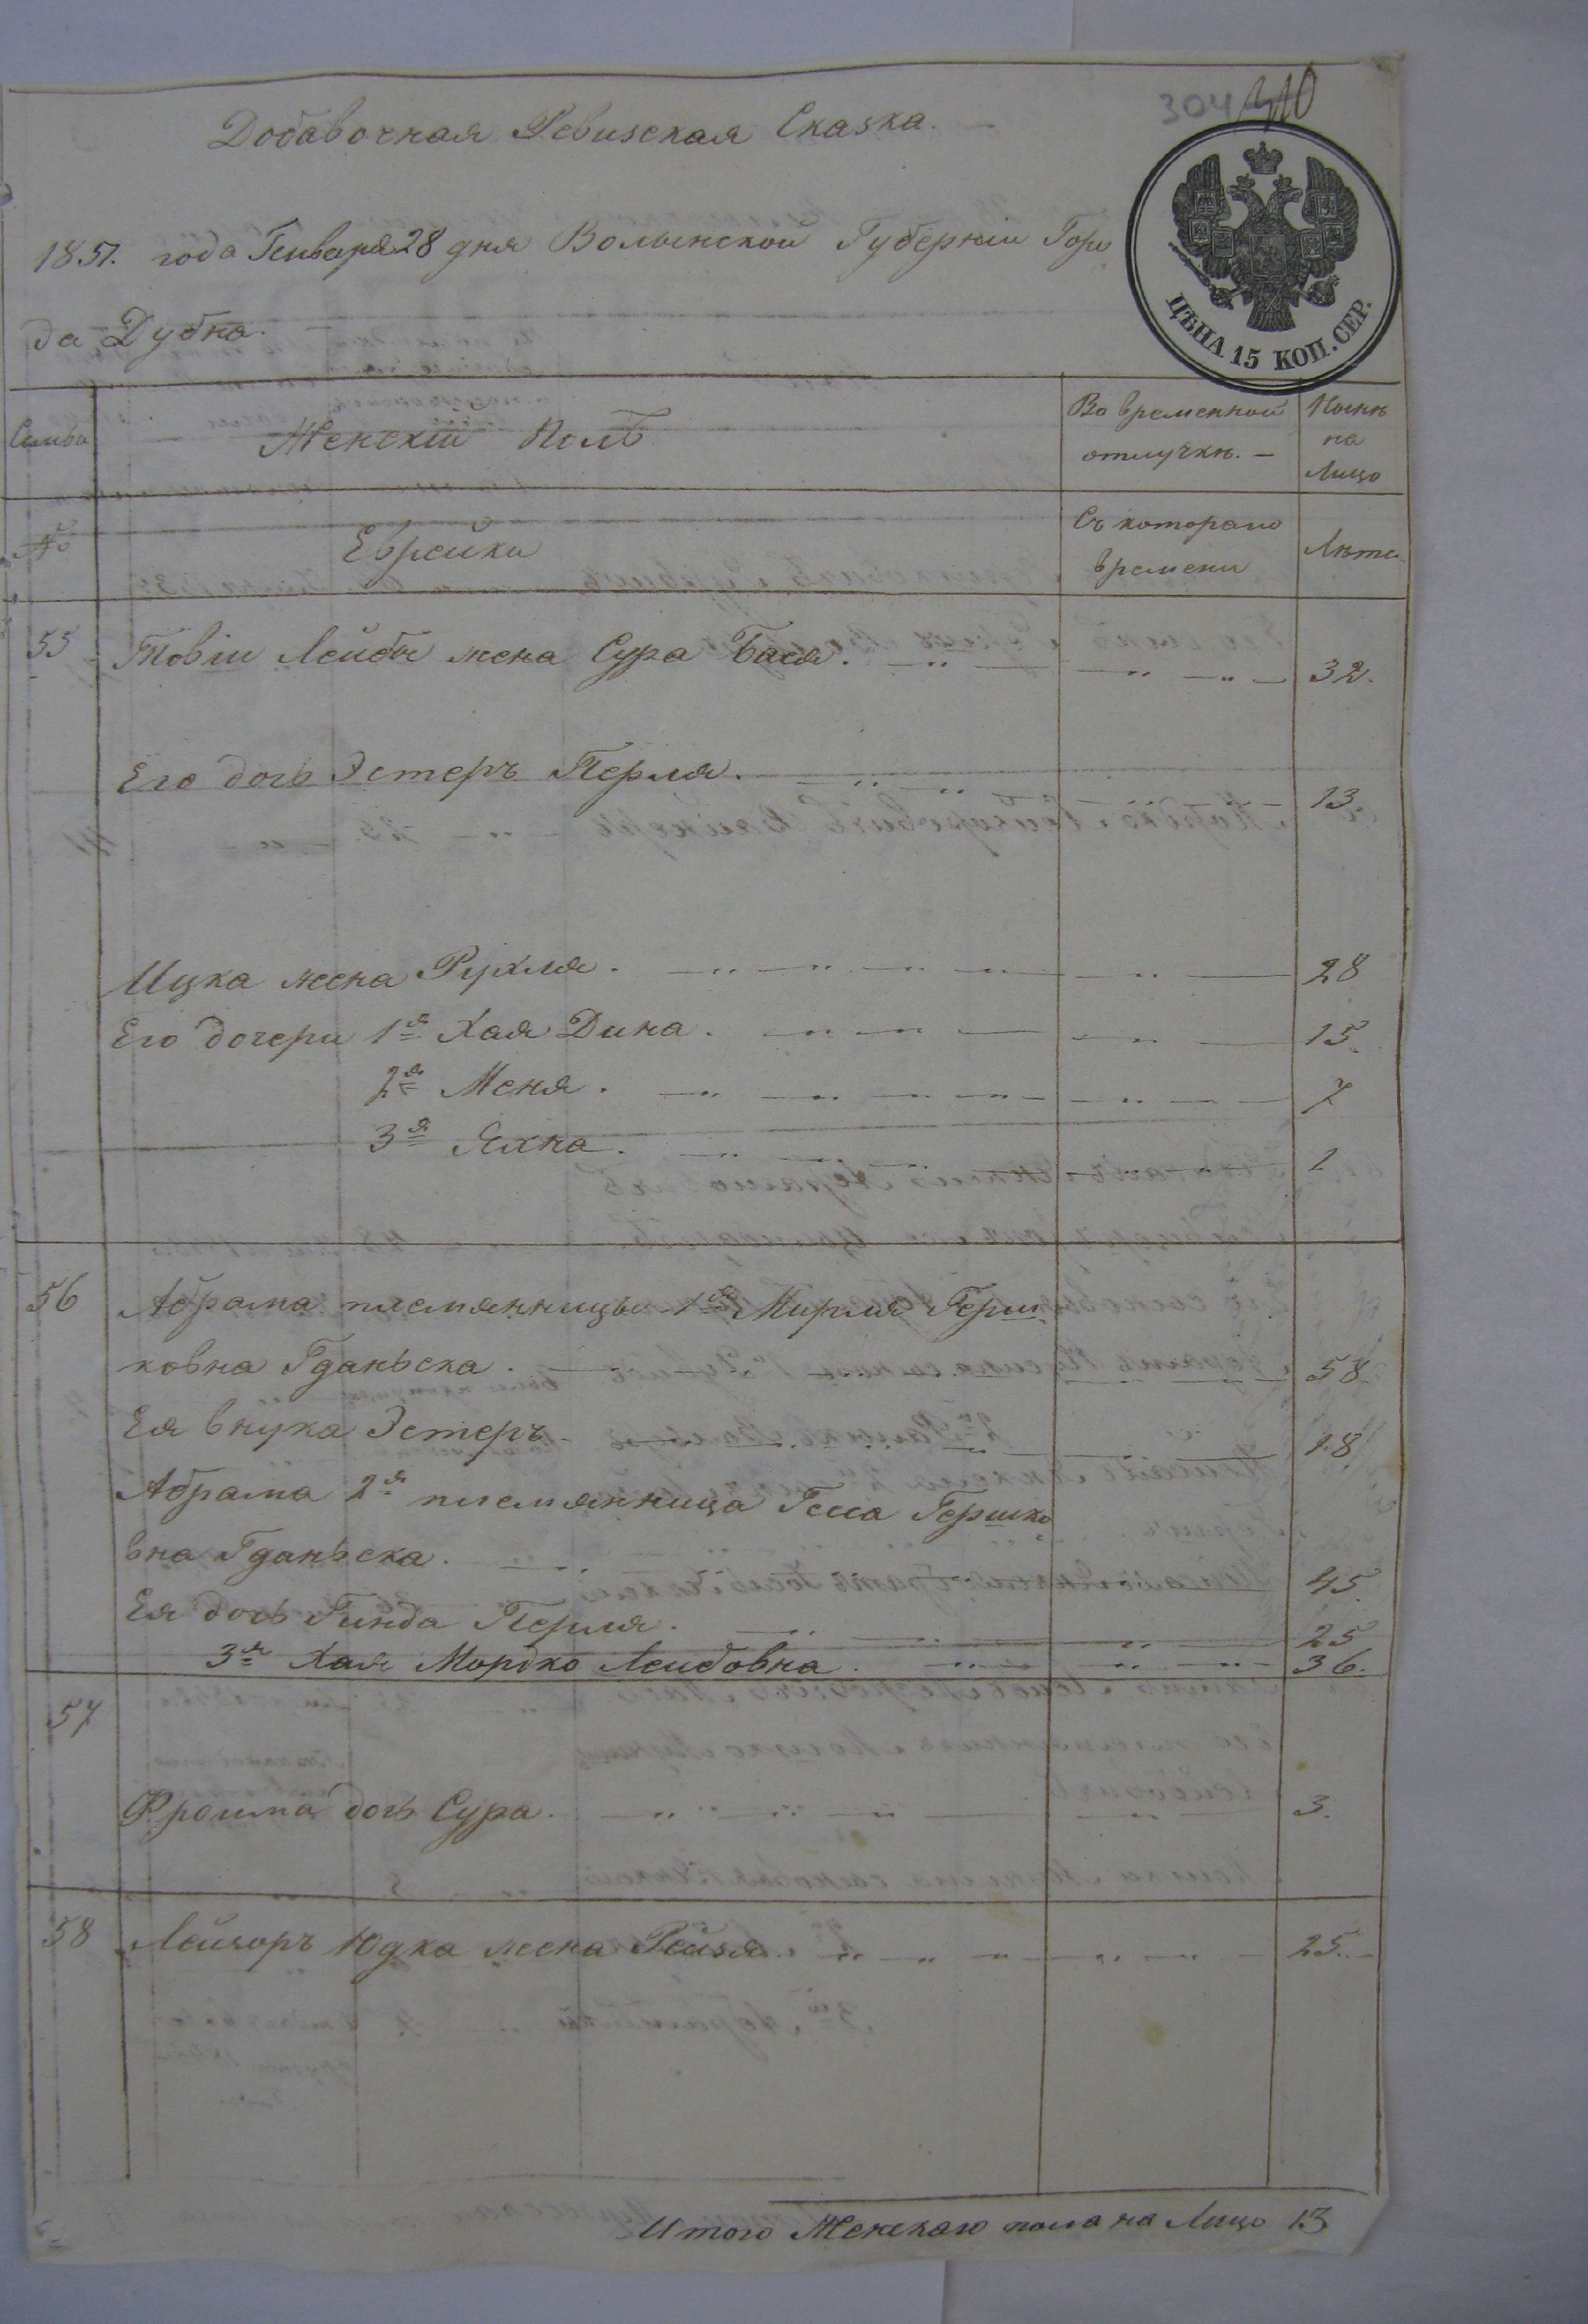 304 310
Добавочная Ревизская Сказка.
1851. года Генваря 28 дня Волынской Губерніи Горо
да Дубна.
ЦѢНА 15 КОП. СЕР.
Семьи Женскій Полъ Во временной отлучкѣ. Нынѣ на Лицо
№ Еврейки Съ котораго времени Лѣта
55 Товіи Лейбы жена Сура Бася. 32.
Его дочь Эстеръ Перля. 13.
Ицка жена Рухля. 28
Его дочери 1я Хая Дина. 15.
2я Меня. 7
3я Яхна. 1
56 Абрама племянницы 1я Мирля Герш
ковна Гданьска. 58.
Ея внука Эстеръ 18.
Абрама 2я племянница Гесса Гершко
вна Гданьска. 45.
Ея дочь Гинда Перля. 25
3я Хая Мордко Лейбовна. 36.
57
Фроима дочь Сура. 3.
58 Лейзоръ Юдка жена Рейзя. 25.
Итого Женскаго пола на Лицо 13